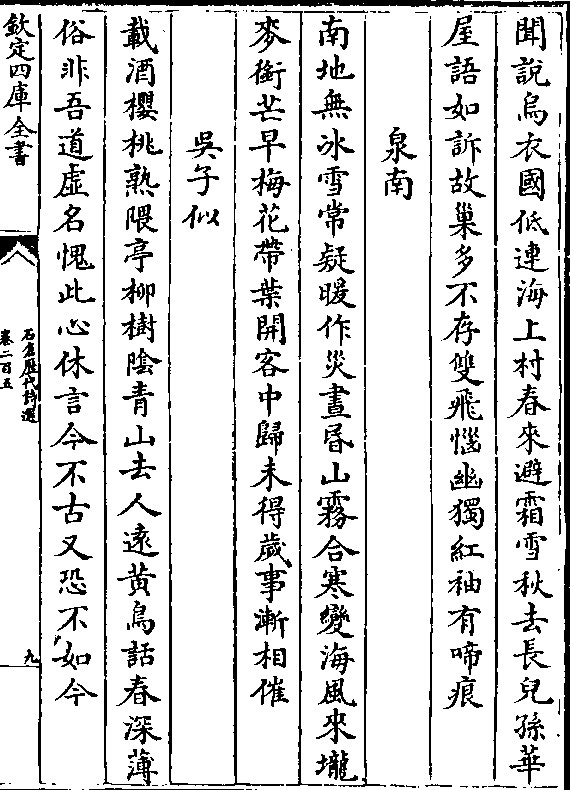 聞說烏衣國低連海上村春來避霜雪秋去長兒孫華
屋語如訴故巢多不存雙飛惱幽獨紅袖有啼痕
泉南
南地無冰雪常疑暖作災晝昏山霧合寒變海風來壠
麥銜芒早梅花帶葉開客中歸未得歲事漸相催
吳子似
載酒櫻桃熟隈亭柳樹陰青山去人遠黃鳥話春深薄
俗非吾道虛名愧此心休言今不古又恐不如今
欽定四庫全書
石倉歷代詩選
卷二百五
九